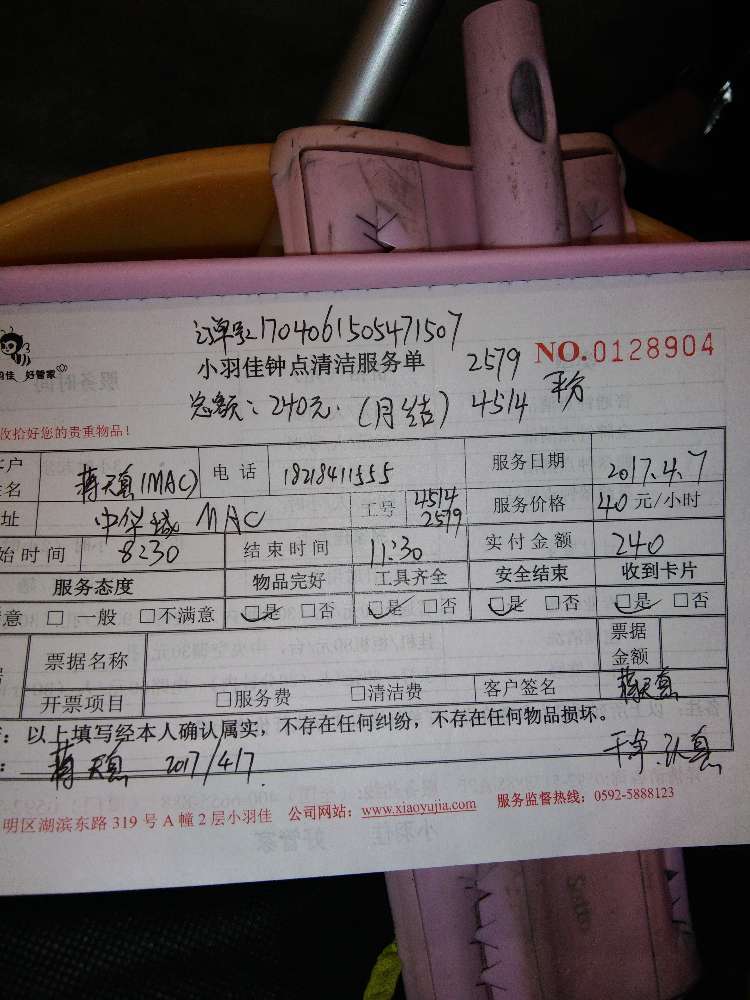 订单号:1704061505471507
小羽佳钟点清洁服务单 2579 NO.0128904
羽佳 好管家
总额：240元.（月结）4514 平分
收拾好您的贵重物品！
客户 电话 18218411555 服务日期 2017.4.7
姓名 蒋天真(MAC)
址 中华城 MAC 工号 4514 2579 服务价格 40元/小时
始时间 8:30 结束时间 11:30 实付金额 240
服务态度 物品完好 工具齐全 安全结束 收到卡片
意 □一般 □不满意 □是 □否 □是 □否 □是 □否 □是 □否
票据名称 票据金额
开票项目 □服务费 □清洁费 客户签名 蒋天真
：以上填写经本人确认属实，不存在任何纠纷，不存在任何物品损坏。
：蒋天真 2017/4/7. 干净.认真
明区湖滨东路 319 号 A 幢 2 层小羽佳 公司网站：www.xiaoyujia.com 服务监督热线：0592-5888123